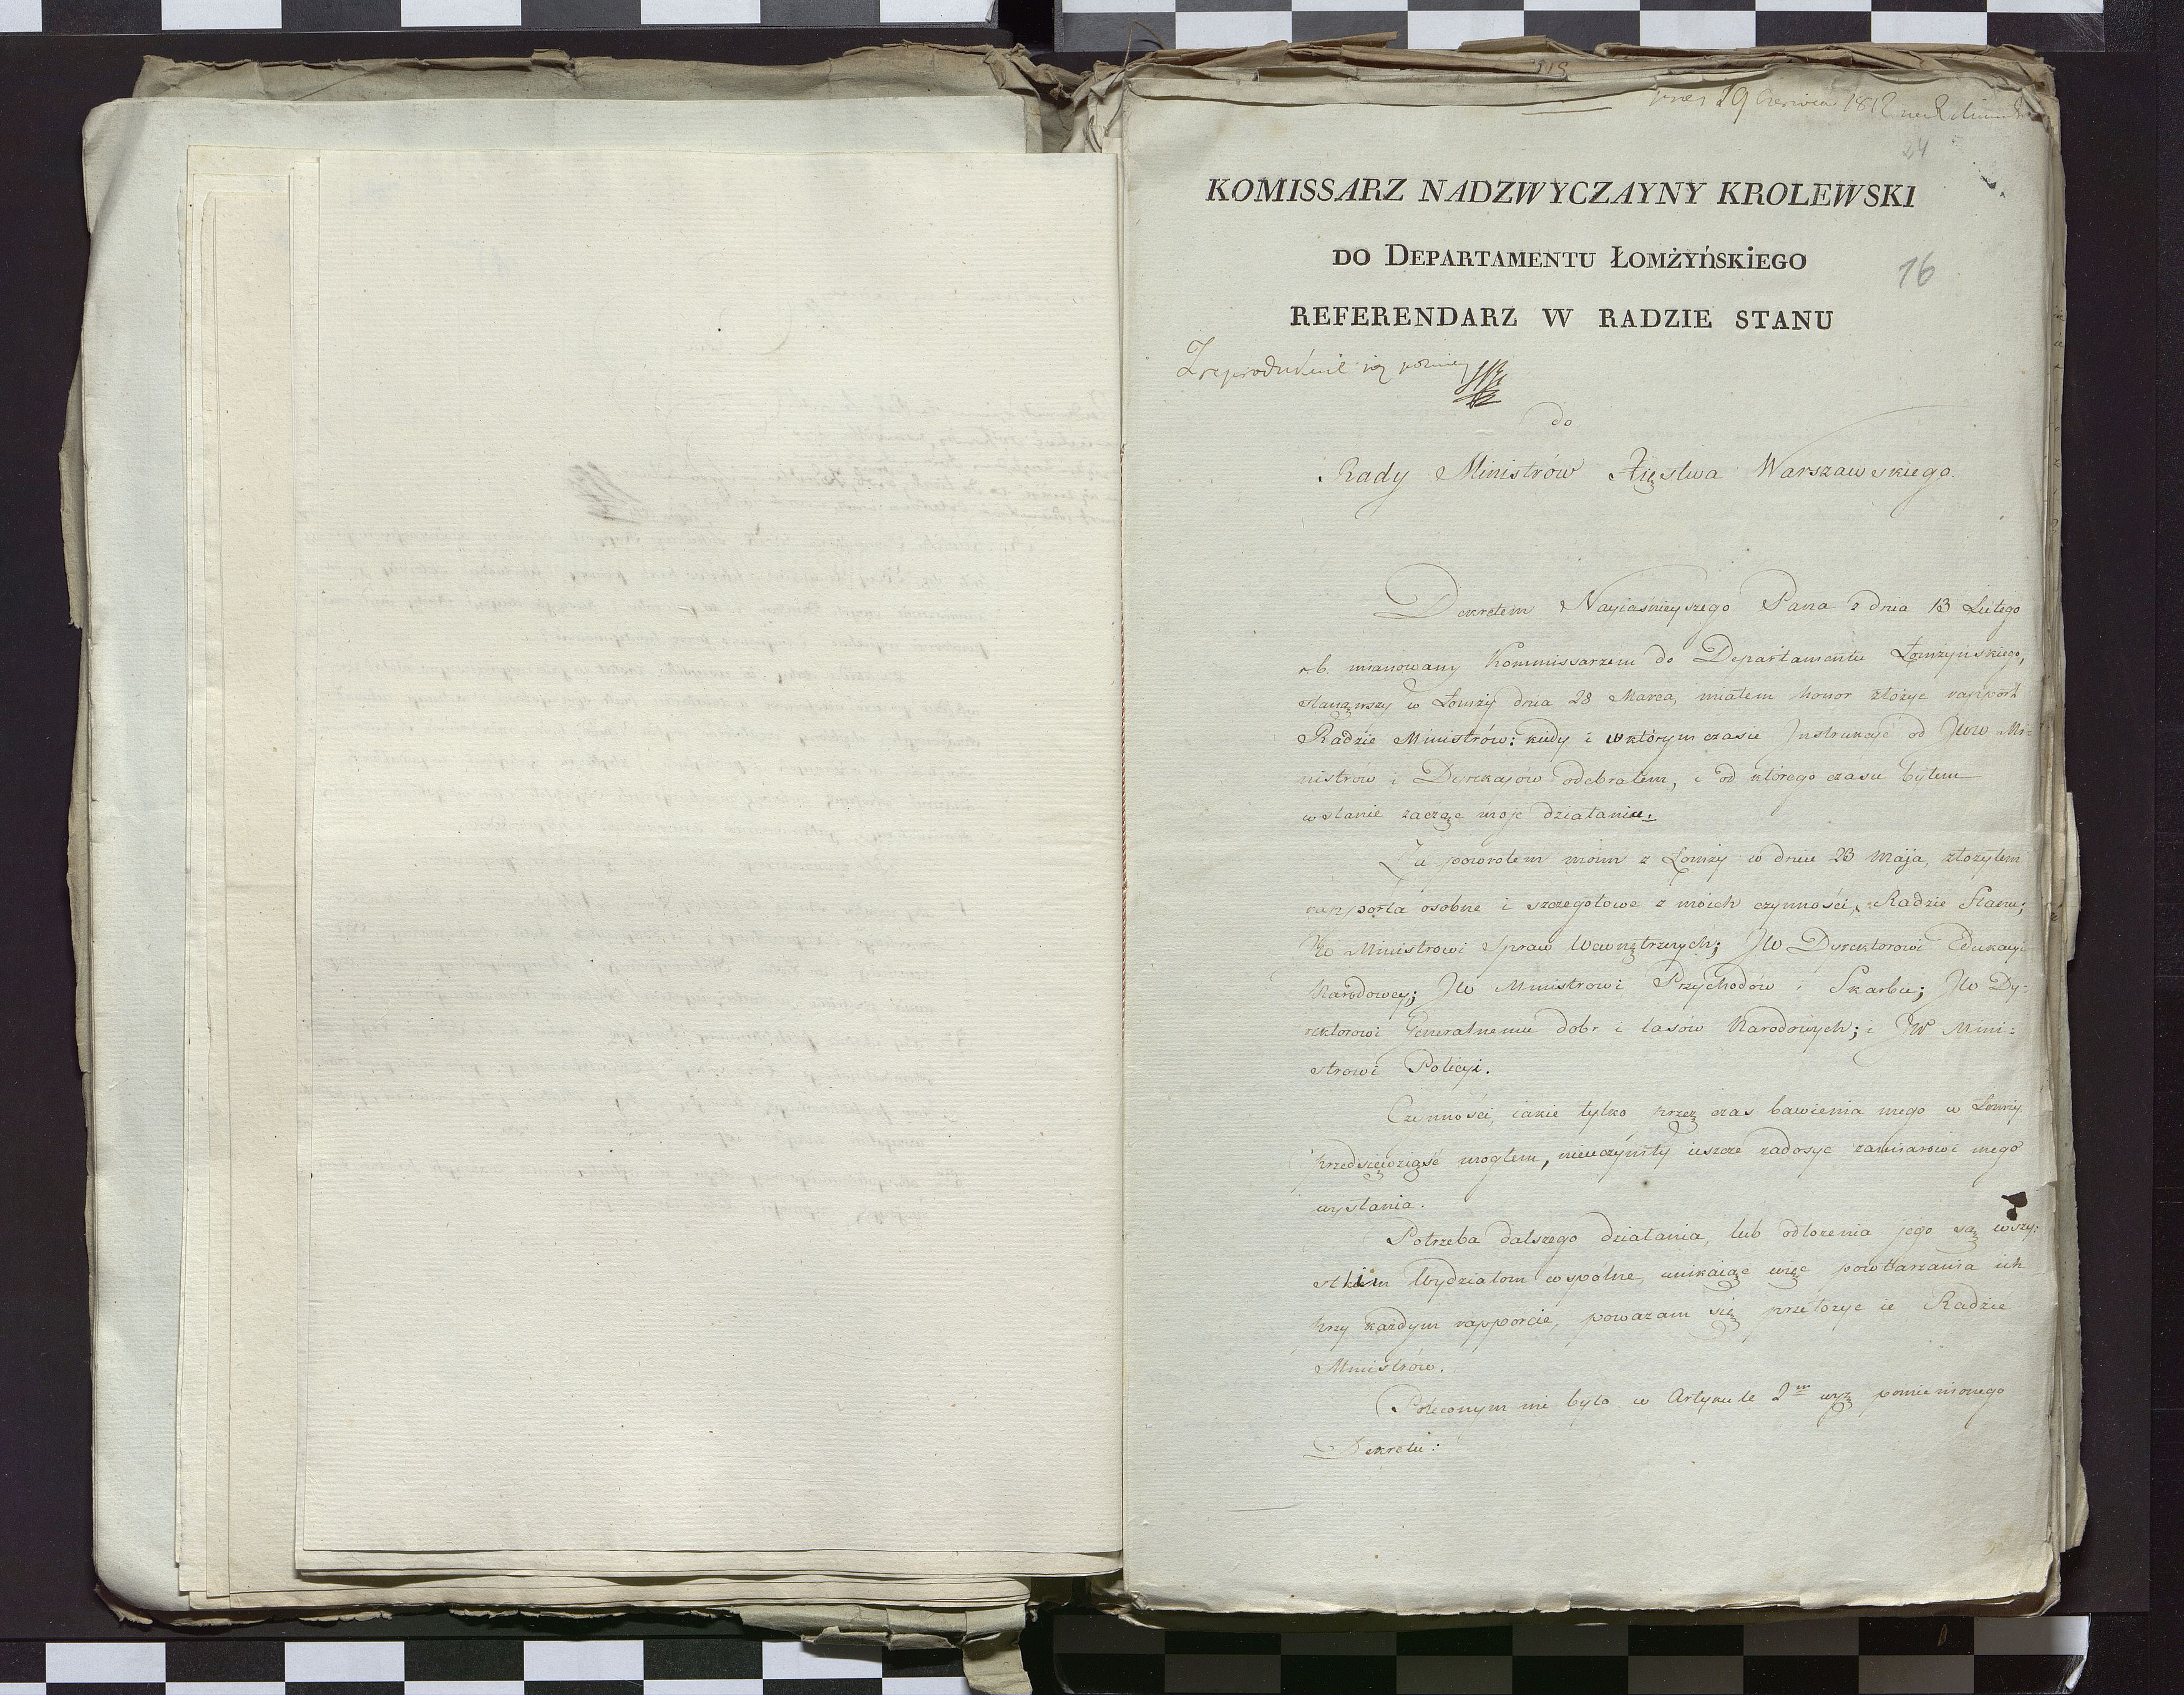 29 Czerwca 1812
24
KOMISSARZ NADZWYCZAYNY KROLEWSKI
DO DEPARTAMENTU ŁOMŻYńSKiEGO
16
REFERENDARZ W RADZIE STANU
Zreprodukować się później
do
Rady Ministrów Xięstwa Warszawskiego.
Dekretem Nayiaśnieyszego Pana z dnia 13 Lutego
r. b. mianowany Kommissarzem do Departamentu Łomżyńskiego,
stanąwszy w Łomży dnia 28 Marca, miałem honor złożyć rapport
Radzie Ministrów: kiedy i w którym czasie Instrukcyć od JWW Mi=
nistrow i Dyrekcyów odebrałem, i od którego czasu byłem
w stanie zacząć moje działanie.
Za powrotem moim z Łomży w dniu 23 Maja, złożyłem
rapporta osobne i szczegołowe z moich czynności, Radzie Stanu;
JW Ministrowi Spraw Wewnętrznych; JW Dyrektorowi Edukacyi
Narodowey; JW Ministrowi Przychodów i Skarbu; JW Dy=
rektorowi Generalnemu dobr i lasów Narodowych; i JW Mini=
strowi Policyi.
Czynności, iakie tylko przez czas bawienia mego w Łomży
przedsięwziąść mogłem, nieuczyniły ieszcze zadosyć zamiarowi mego
wysłania.
Potrzeba dalszego działania, lub odłożenia jego są wszy=
stkim Wydziałom wspólne, unikaiąc więc powtarzania ich
przy każdym rapporcie, poważam się przełożyć ie Radzie
Ministrów.
Poleconym mi było w Artykule 2m wyż pomienionego
Dekretu: